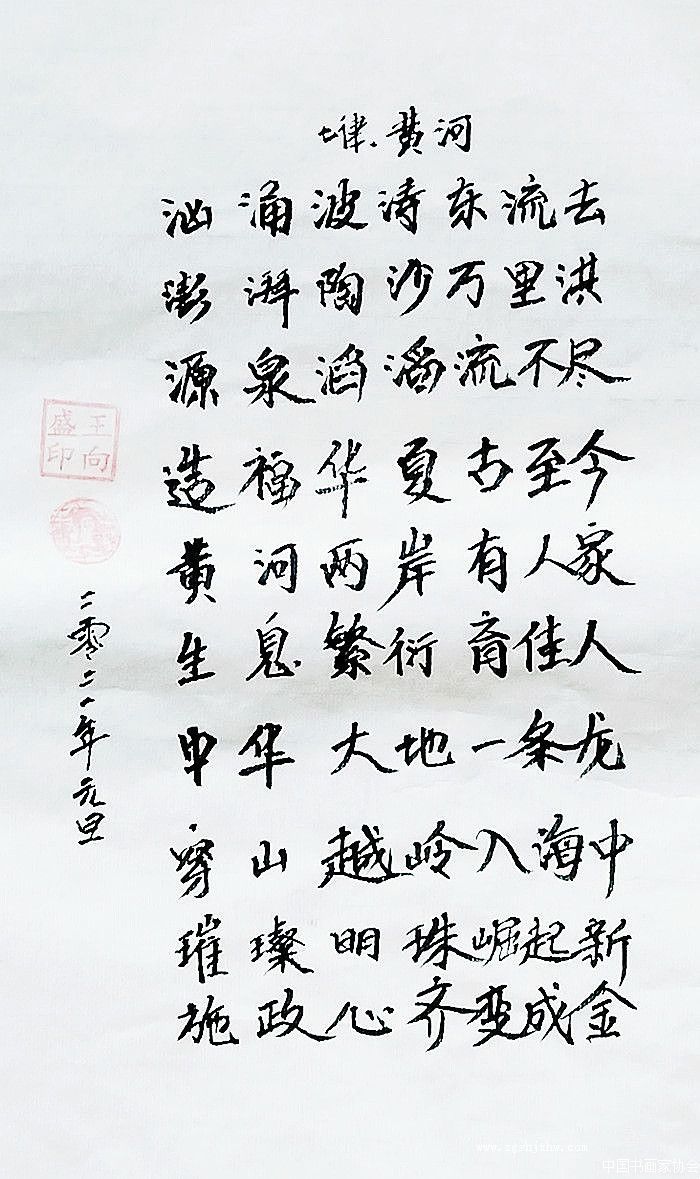 七律.黄河
汹涌波涛东流去
澎湃陶沙万里洪
源泉滔滔流不尽
造福华夏古至今
黄河两岸有人家
生息繁衍育佳人
中华大地一条龙
穿山越岭入海中
璀璨明珠崛起新
施政心齐变成金
二零二一年元旦
王向盛印
中国书画家协会